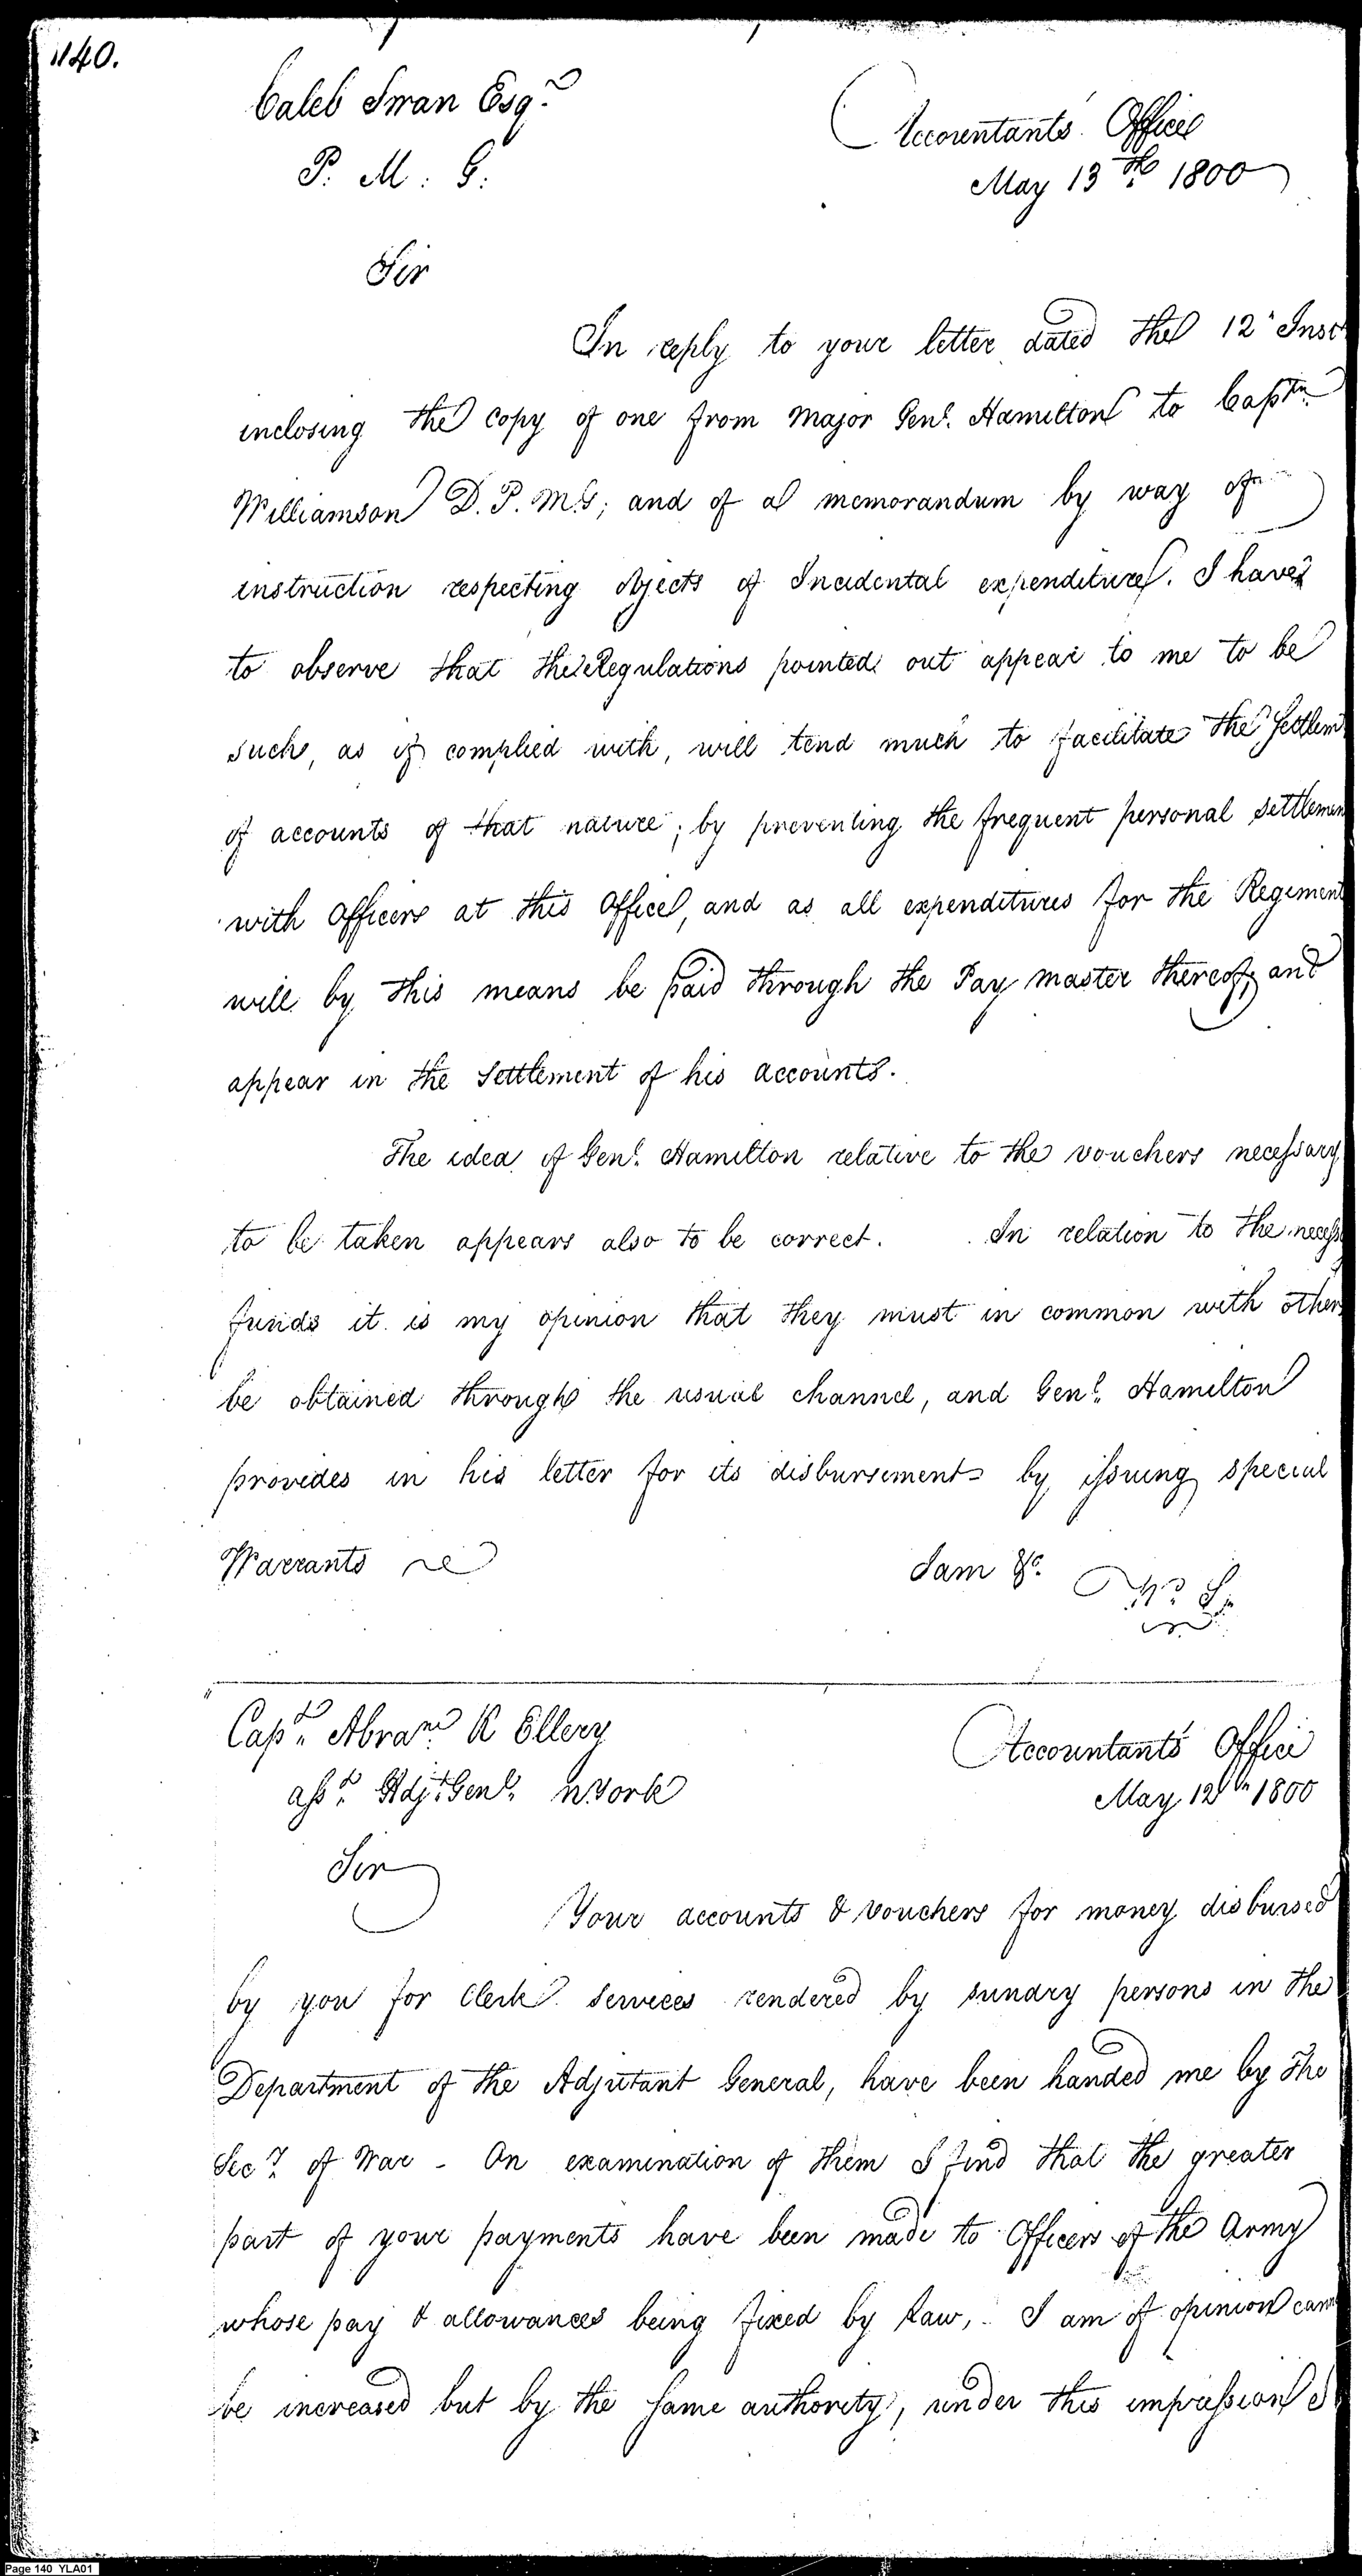 140.
Caleb Swan Esqr.
P. M. G.
Accountants Office
May 13th. 1800
Sir
In reply to your letter dated the 12th Inst
inclosing the copy of one from Major Genl. Hamilton to Captn.
Williamson D. P. M. G; and of a memorandum by way of
instruction respecting objects of Incidental expenditure. I have
to observe that the Regulations pointed out appear to me to be
such, as if complied with, will tend much to facilitate the Settlem
of accounts of that nature; by preventing the frequent personal settlemen
with Officers at this Office, and as all expenditures for the Regiment
will by this means be paid through the Pay master thereof, and
appear in the Settlement of his accounts.
The idea of Genl. Hamilton relative to the vouchers necessary
to be taken appears also to be correct. In relation to the necess
funds it is my opinion that they must in common with other
be obtained through the usual channel, and Genl. Hamilton
provides in his letter for its disbursement by issuing special
Warrants
I am &c.
W. S.
Capt. Abram. R Ellery
asst. Adjt. Genl. N York
Accountants Office
May 12th 1800
Sir
Your accounts & vouchers for money disbursed
by you for Clerk Services rendered by sundry persons in the
Department of the Adjutant General, have been handed me by The
Secy. of War - On examination of them I find that the greater
part of your payments have been made to Officers of the Army
whose pay & allowances being fixed by Law, I am of opinion cann
be increased but by the same authority, under this impression I
Page 140 YLA01